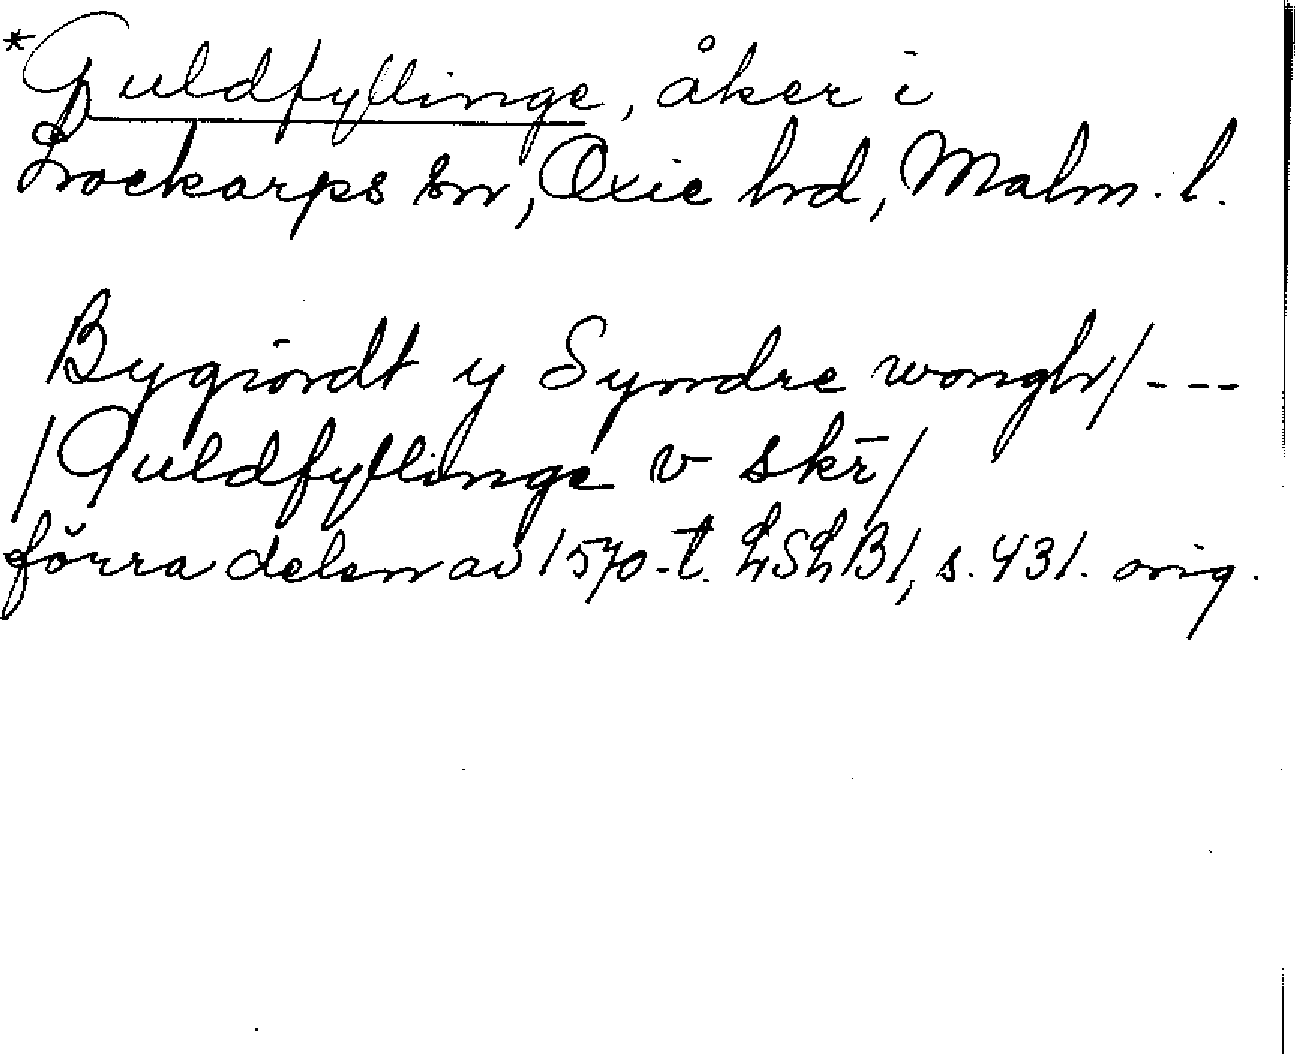 *Guldfyllinge, åker i
Lockarps sn, Oxie hrd, Malm. l.
Bygiördt y Syndre wongh/---
/Guldfyllinge v skr̄/
förra delen av 1570-t. LSLB1, s. 431. orig.